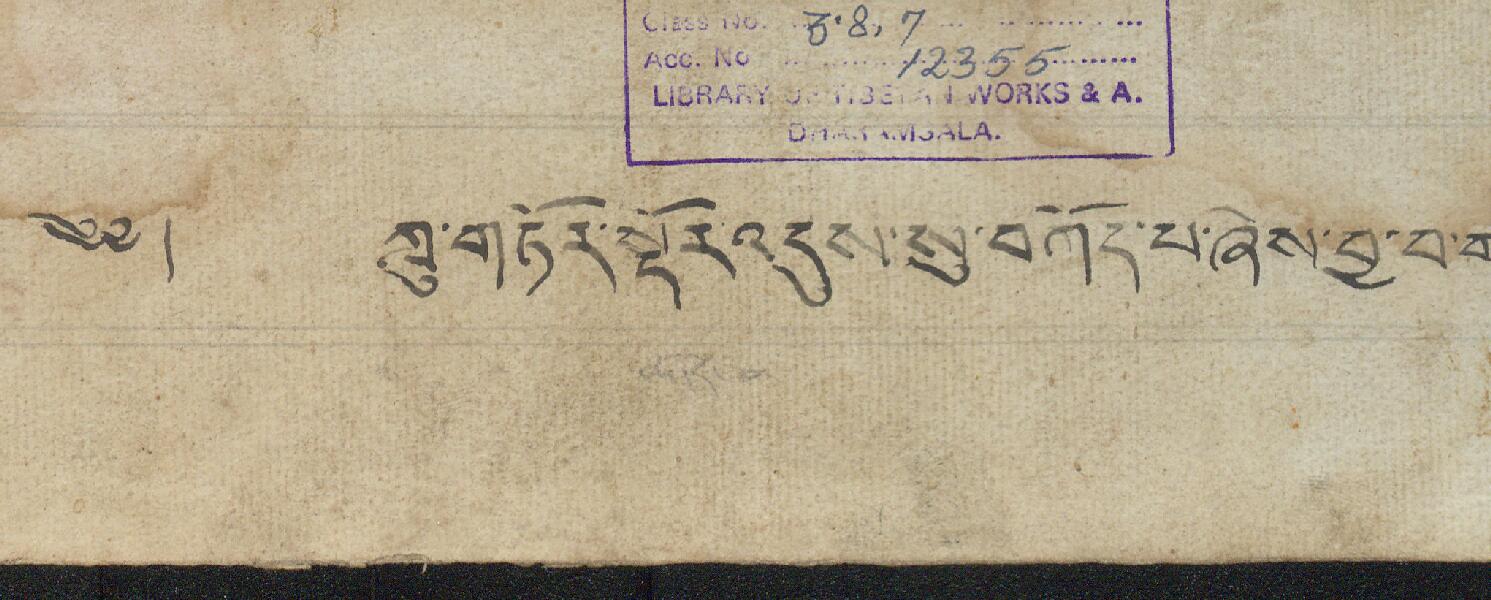 Class No. ཅ.8,7
Acc. No 12355
LIBRARY OF TIBETAN WORKS & A.
DHARAMSALA.
༄༅། ཀླུ་གཏོར་སྡོར་འདུས་སུ་བཀོད་པ་ཞེས་བྱ་བ་བ